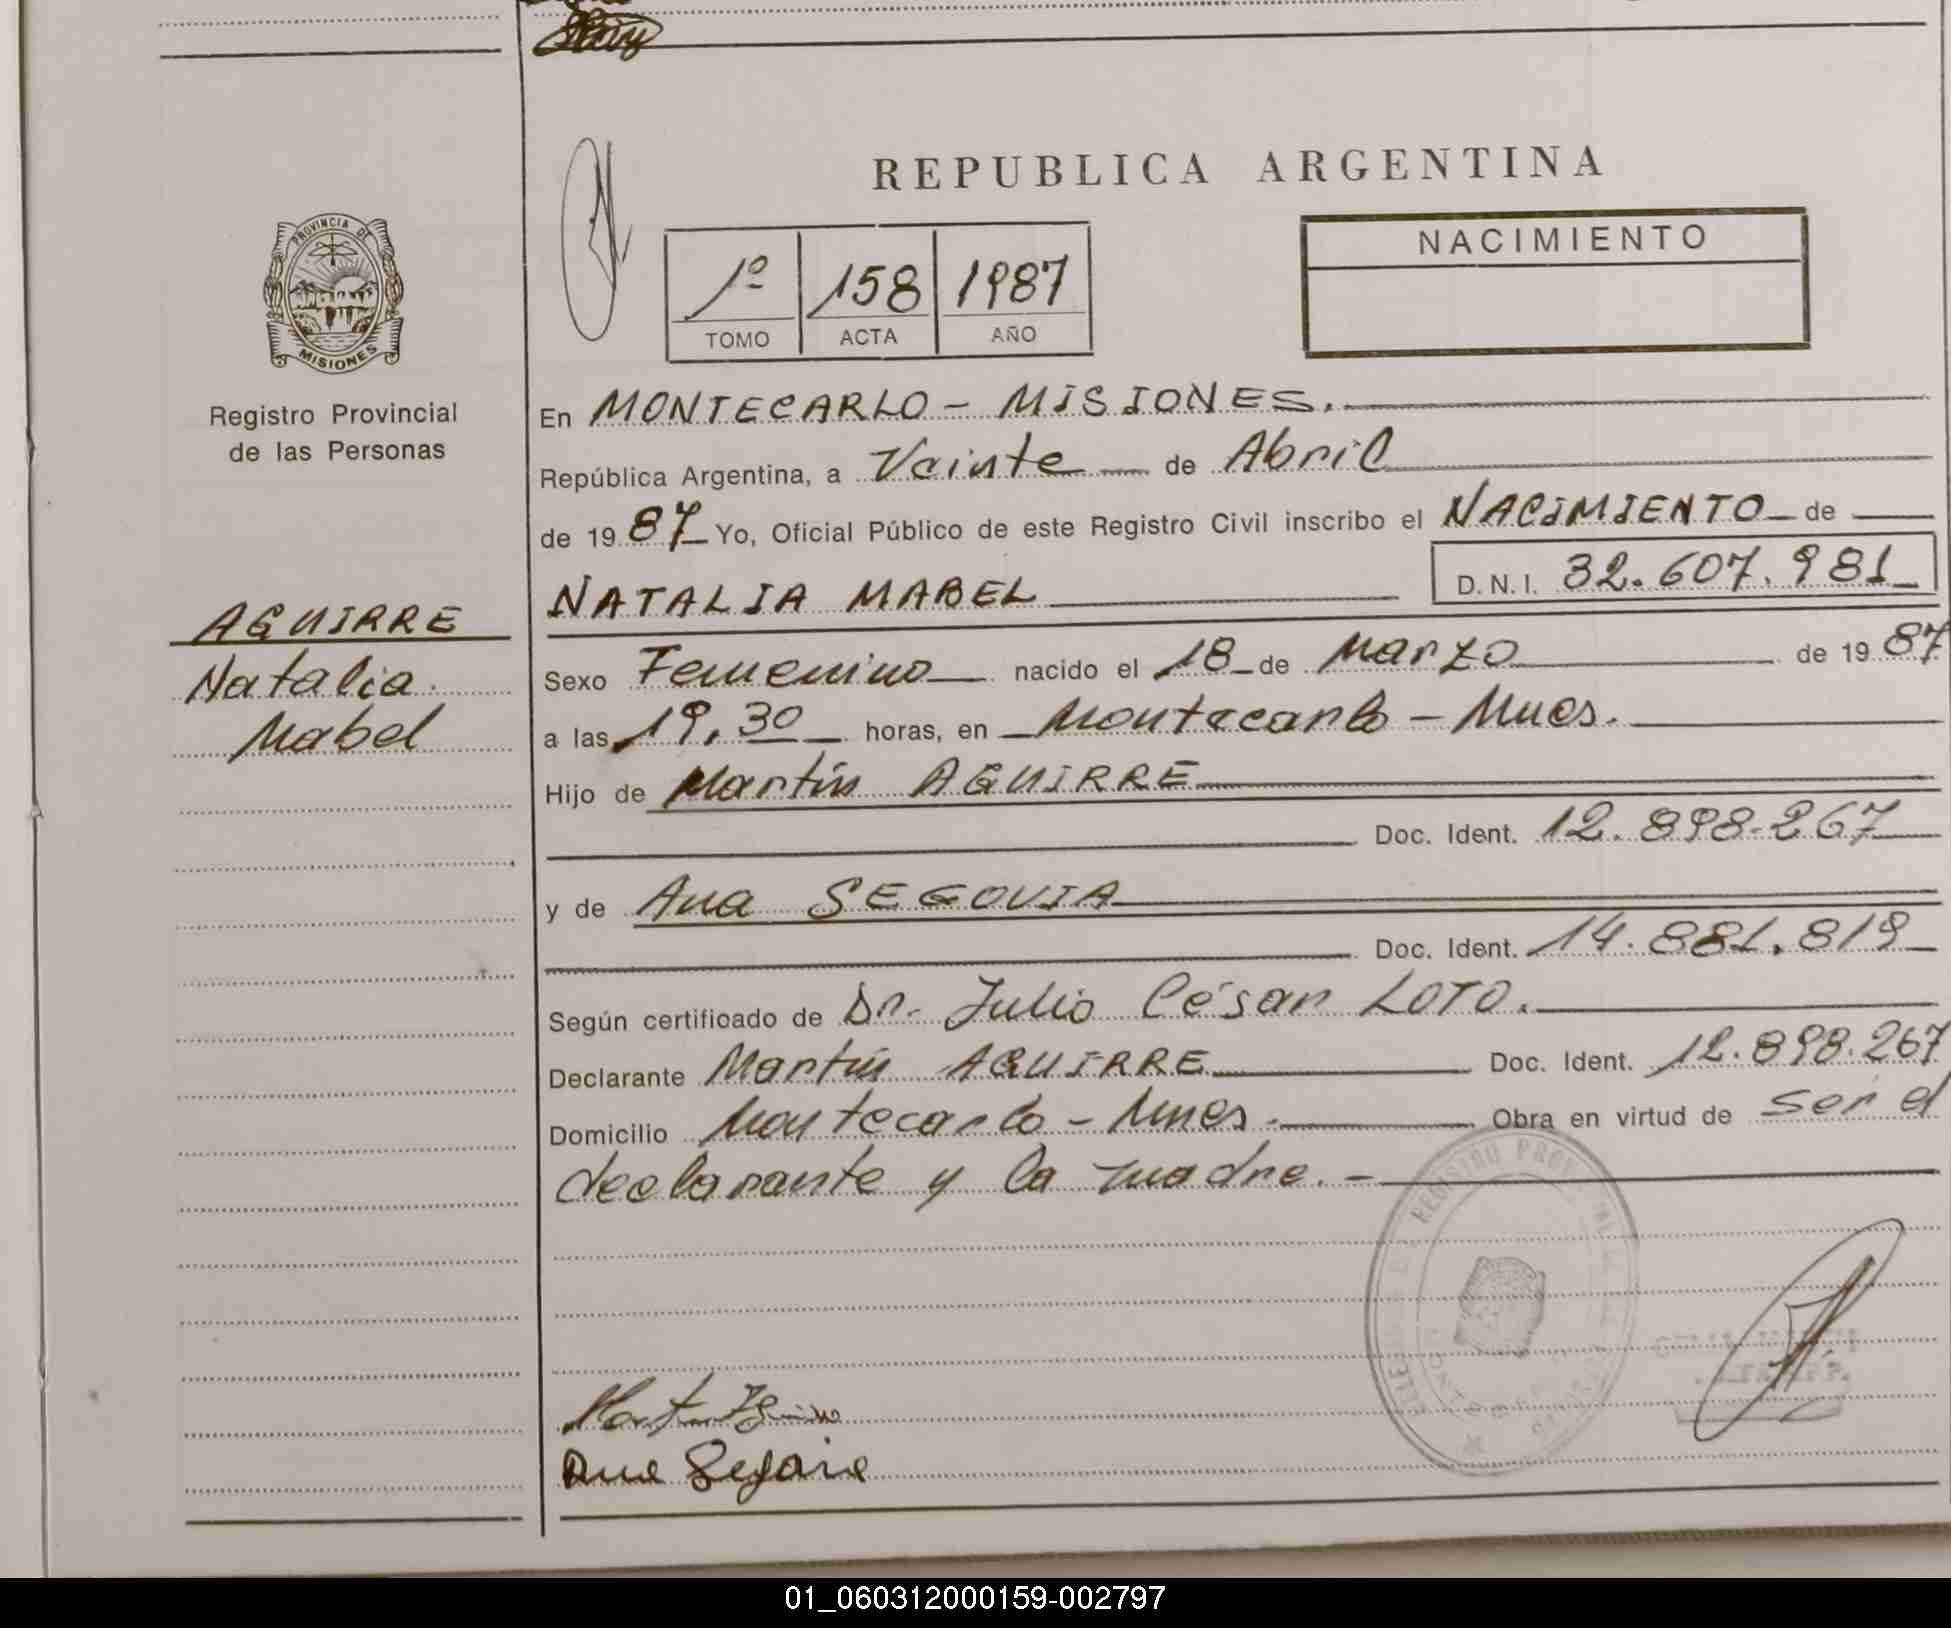 REPUBLICA ARGENTINA
PROVINCIA DE
MISIONES
Registro Provincial
de las Personas
1º 158 1987
TOMO ACTA AÑO
NACIMIENTO
En MONTECARLO - MISIONES.
República Argentina, a Veinte de Abril
de 1987 Yo, Oficial Público de este Registro Civil inscribo el NACIMIENTO de
NATALIA MABEL D.N.I. 32.607.981
AGUIRRE
Natalia
Mabel
Sexo Femenino nacido el 18 de Marzo de 1987
a las 19,30 horas, en Montecarlo - Mnes.
Hijo de Martín AGUIRRE
Doc. Ident. 12.898.267
y de Ana SEGOVIA
Doc. Ident. 14.881.819
Según certificado de Dr. Julio César LOTO.
Declarante Martín AGUIRRE Doc. Ident. 12.898.267
Domicilio Montecarlo - Mnes. Obra en virtud de ser el
declarante y la madre. -
REGISTRO
Ana Segovia
01_060312000159-002797